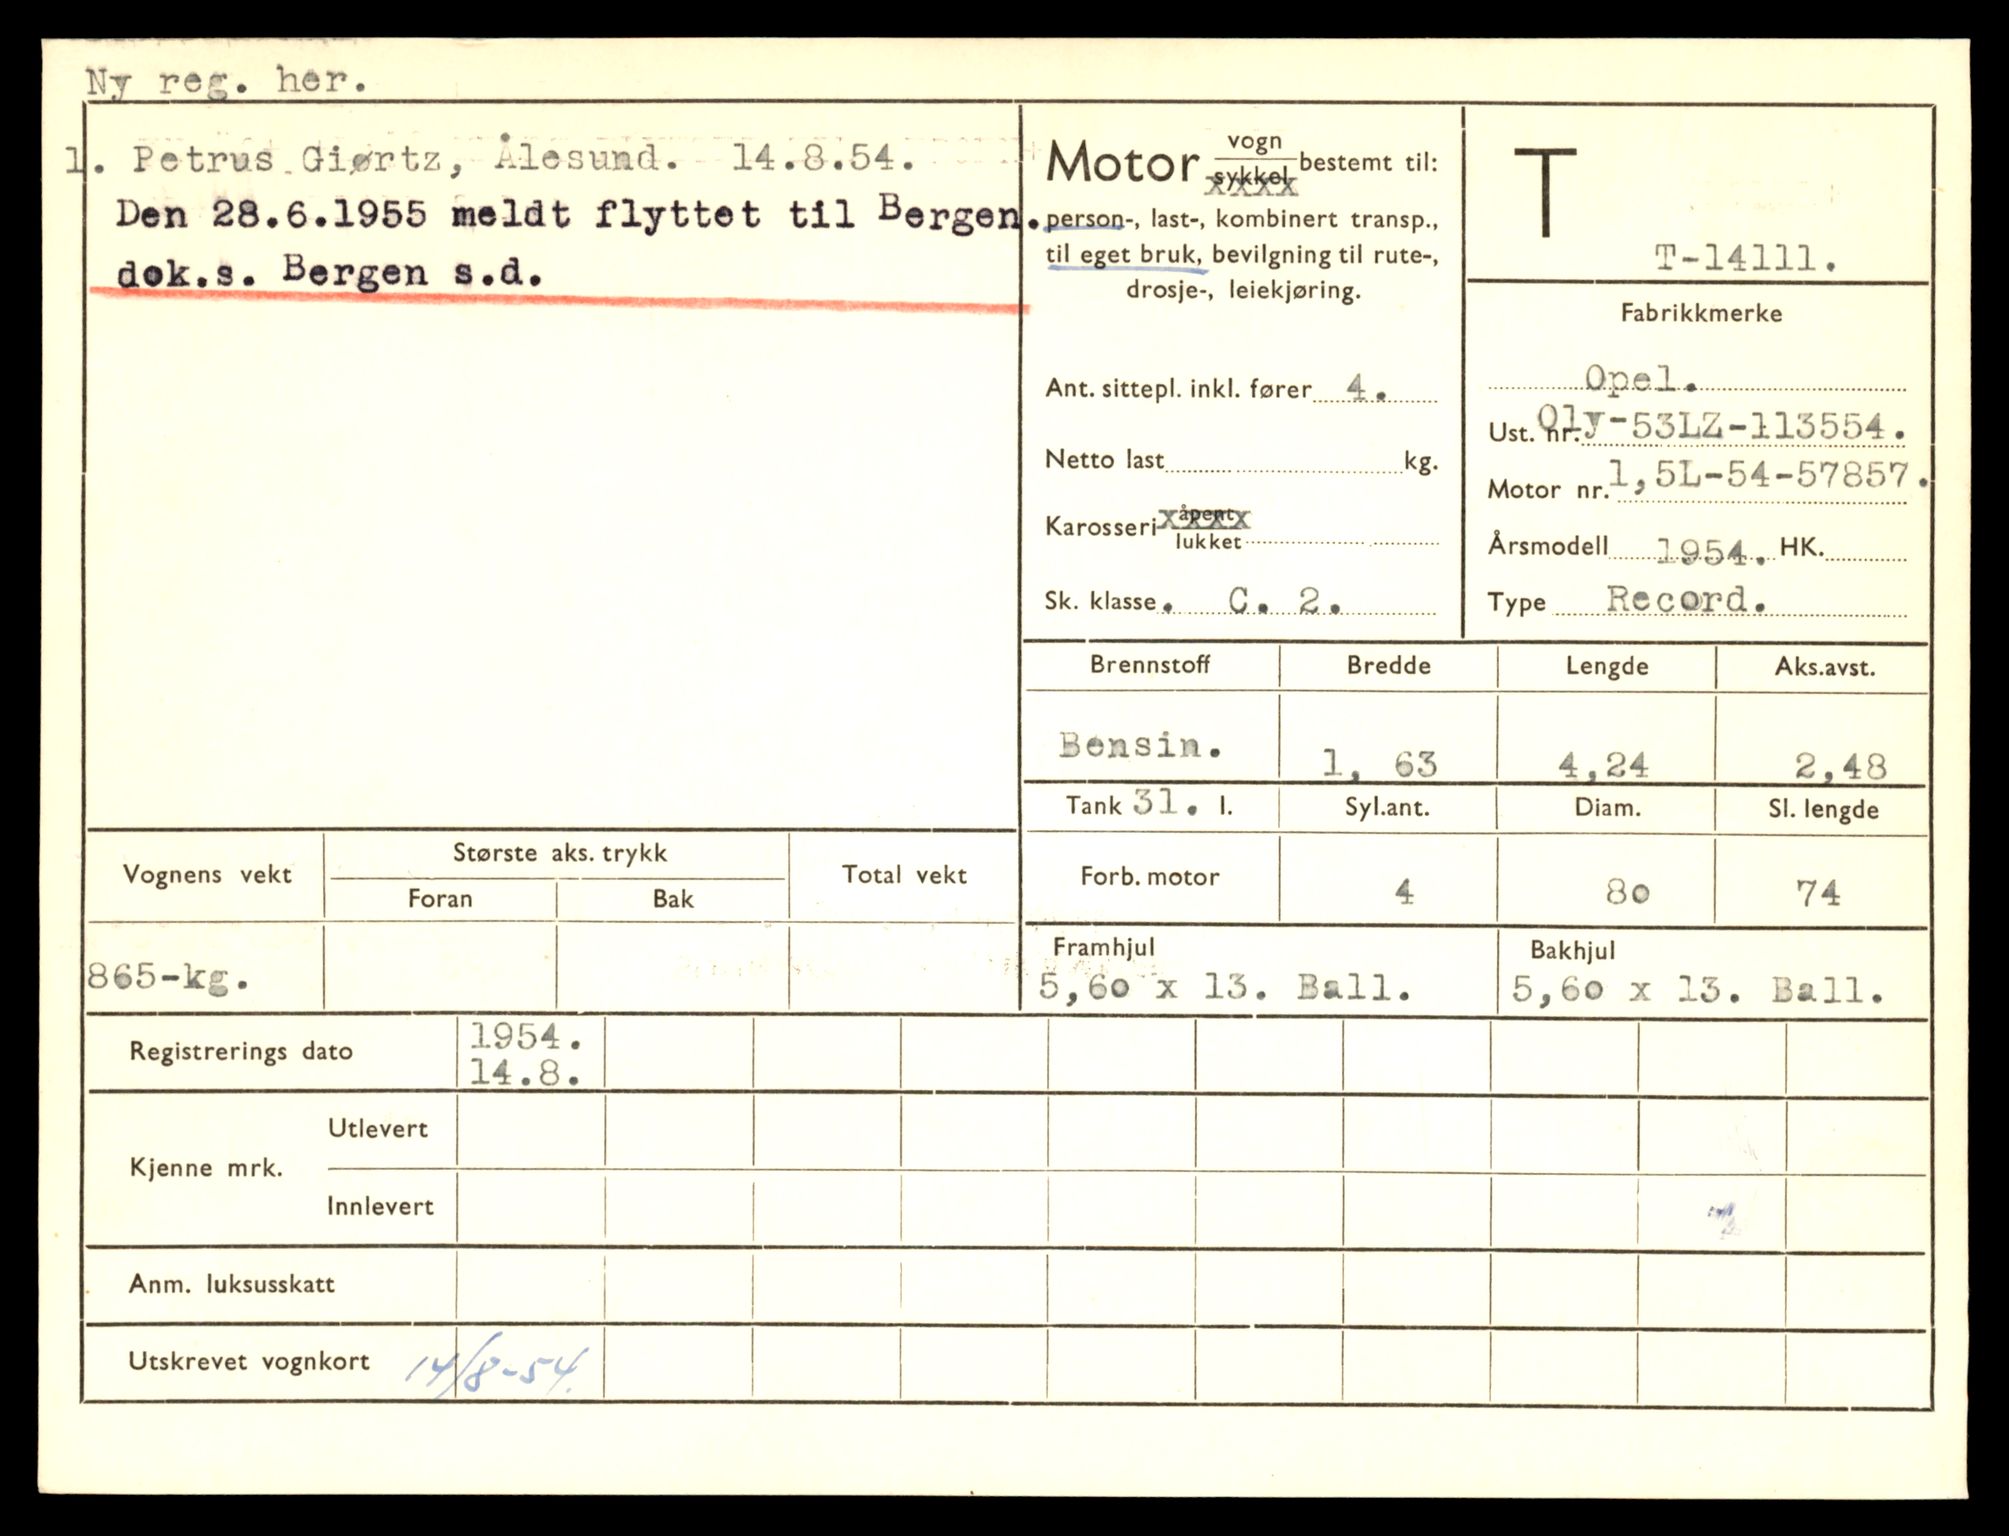 Ny reg. her.
1. Petrus Giørtz, Ålesund. 14.8.54.
Den 28.6.1955 meldt flyttet til Bergen.
dok.s. Bergen s.d.
Motor vogn sykkel bestemt til:
person-, last-, kombinert transp.,
til eget bruk, bevilgning til rute-,
drosje-, leiekjøring.
Ant. sittepl. inkl. fører 4.
Netto last kg.
Karosseri åpent
lukket
Sk. klasse. C. 2.
T
T-14111.
Fabrikkmerke
Opel.
Ust. nr. Oly-53LZ-113554.
Motor nr. 1,5L-54-57857.
Årsmodell 1954. HK.
Type Record.
Brennstoff Bredde Lengde Aks.avst.
Bensin. 1, 63 4,24 2,48
Tank 31. l. Syl.ant. Diam. Sl. lengde
Forb. motor 4 80 74
Framhjul Bakhjul
5,60 x 13. Ball. 5,60 x 13. Ball.
Vognens vekt Største aks. trykk Total vekt
Foran Bak
865-kg.
Registrerings dato 1954.
14.8.
Kjenne mrk. Utlevert
Innlevert
Anm. luksusskatt
Utskrevet vognkort 14/8-54.